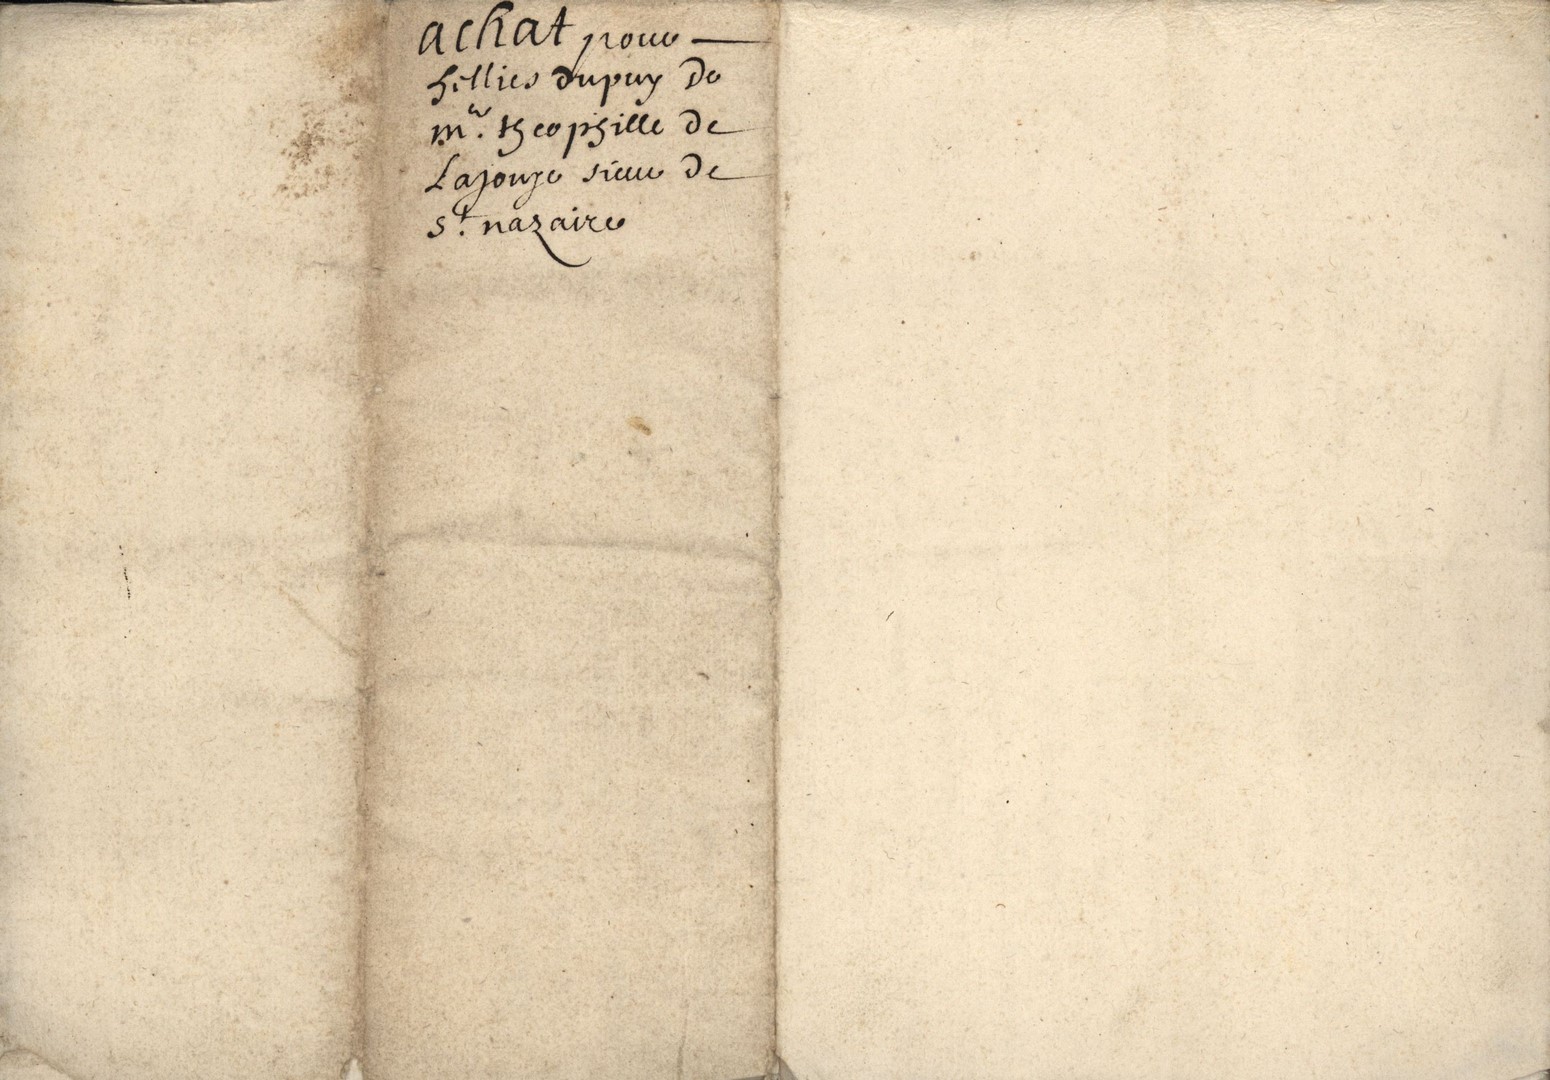 achat pour
hellies dupuy de
mr. theophille de
Lajonye sieur de
st. nazaire